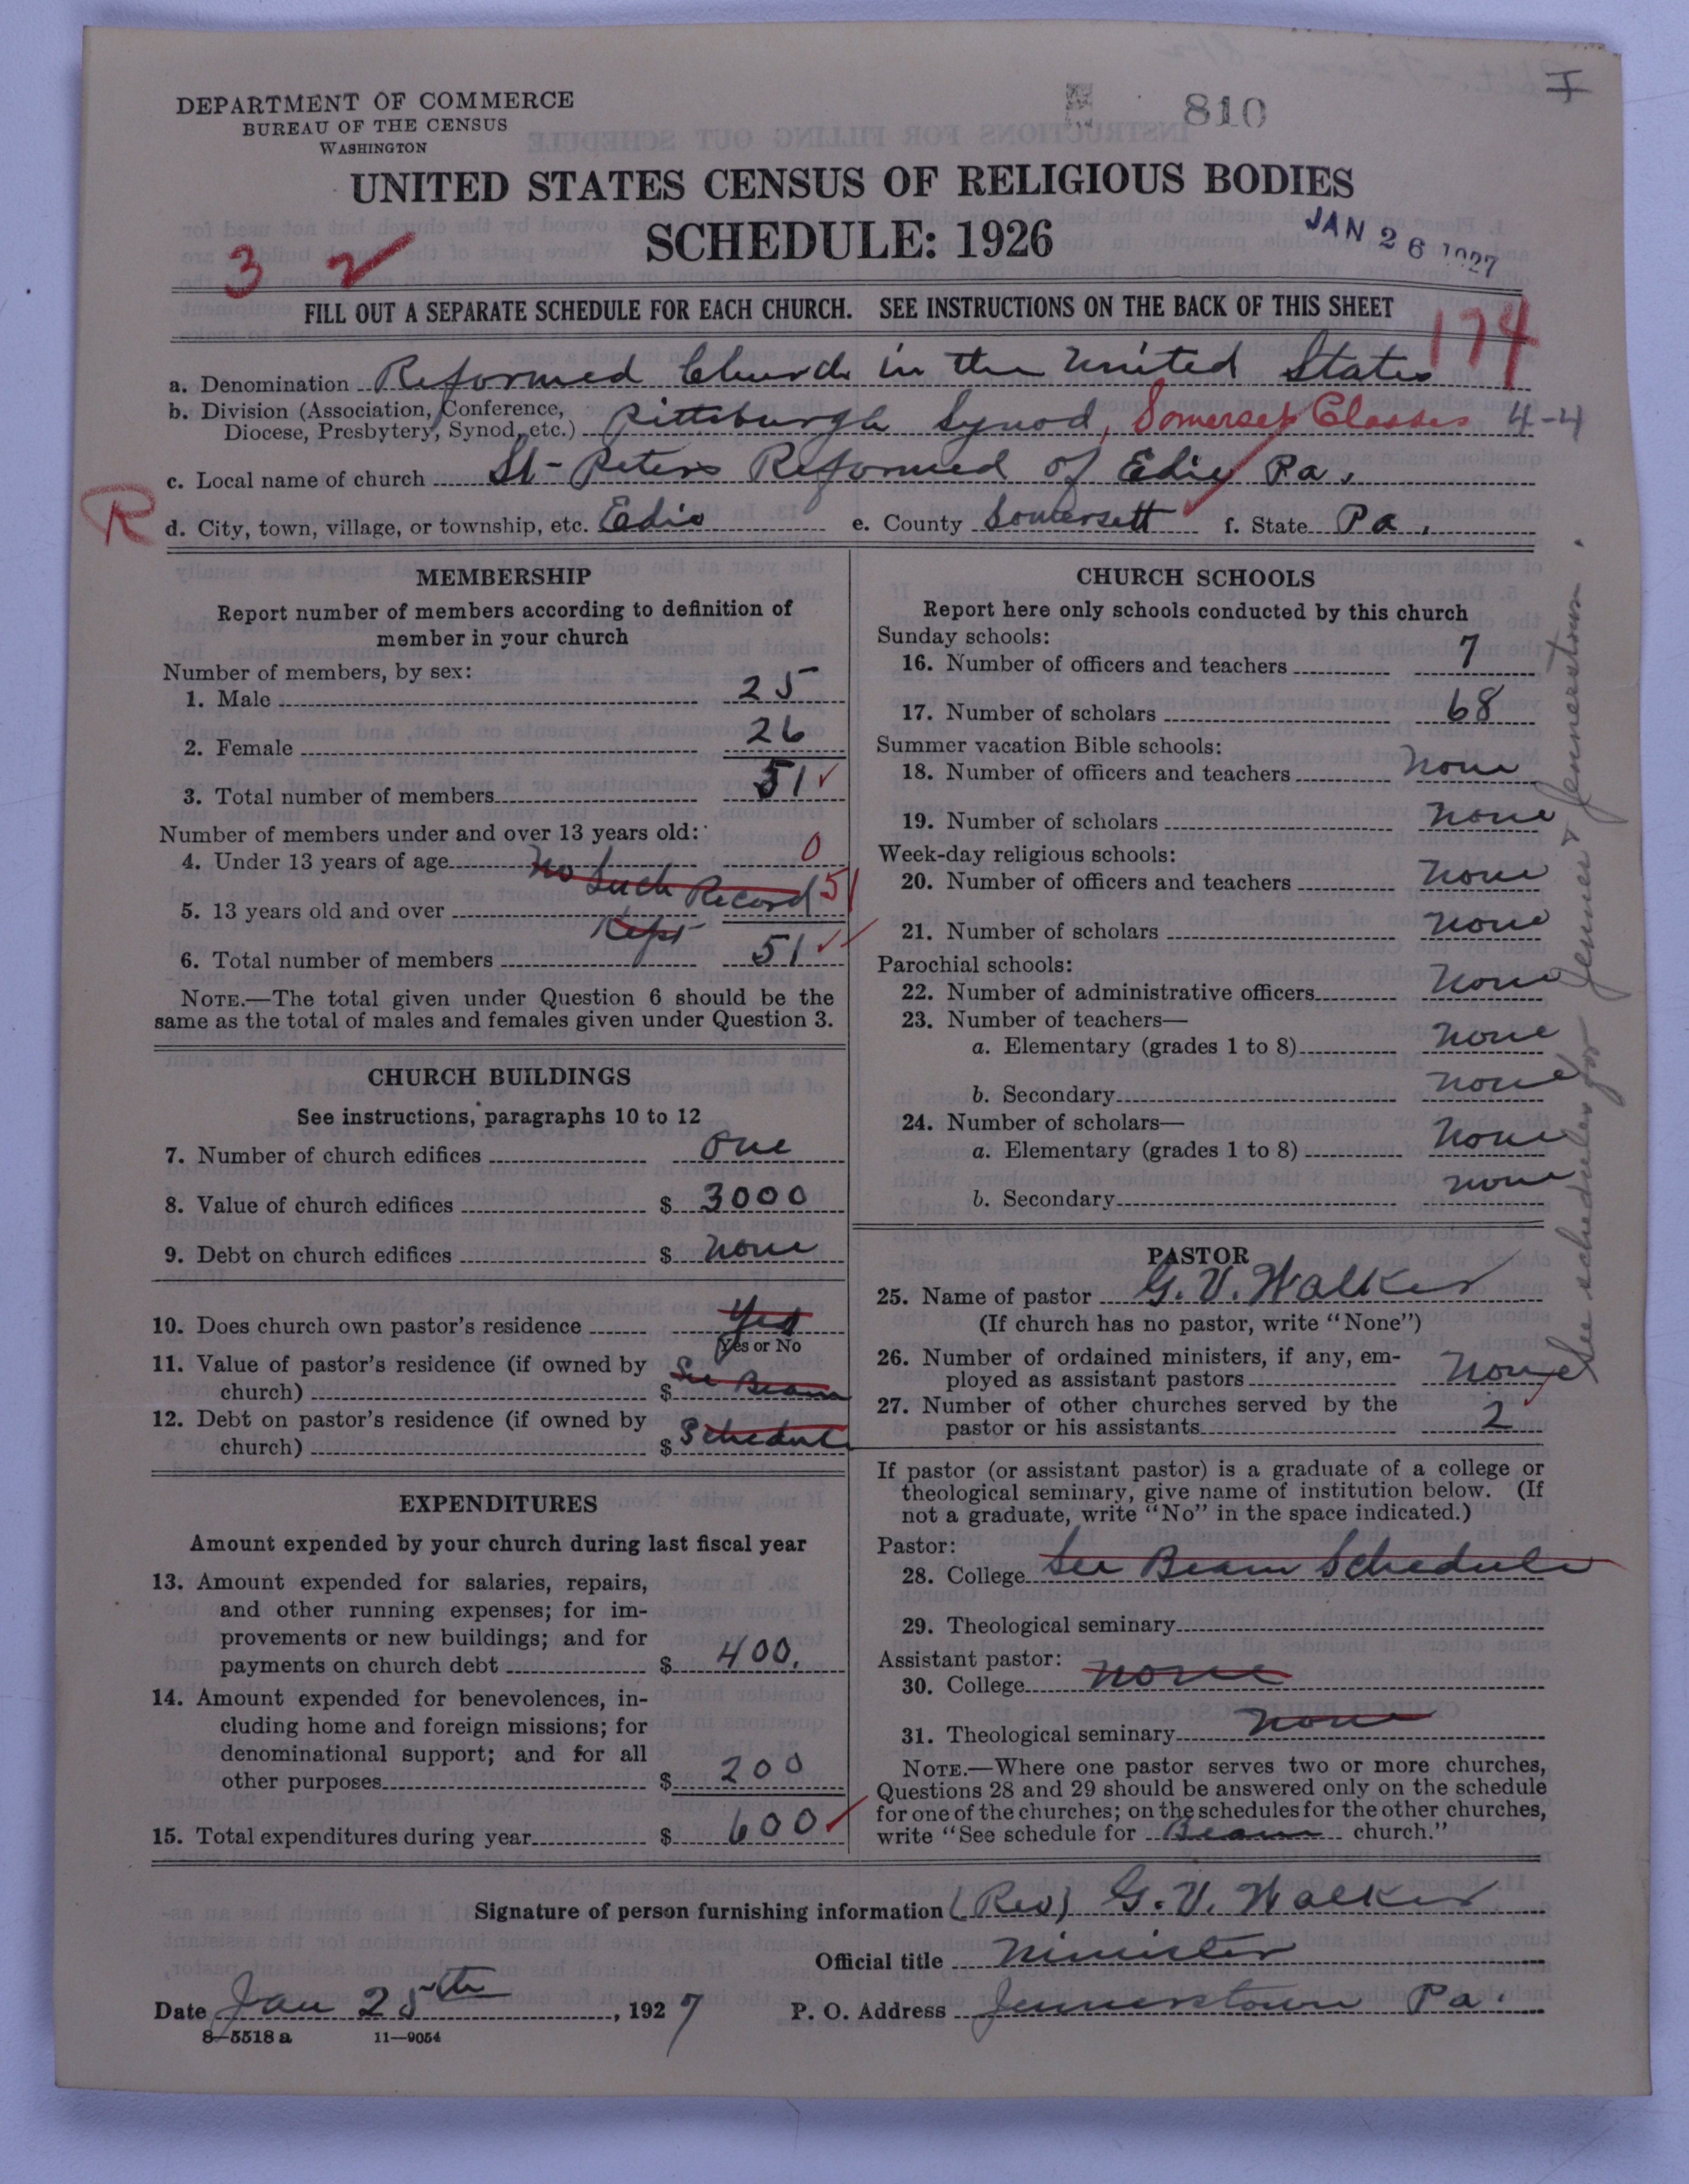 DEPARTMENT OF COMMERCE
BUREAU OF THE CENSUS
WASHINGTON
810
I
UNITED STATES CENSUS OF RELIGIOUS BODIES
SCHEDULE: 1926
JAN 26 1927
3 2
FILL OUT A SEPARATE SCHEDULE FOR EACH CHURCH. SEE INSTRUCTIONS ON THE BACK OF THIS SHEET
174
a. Denomination Reformed Church in the United States
b. Division (Association, Conference, Diocese, Presbytery, Synod, etc.) Pittsburgh Synod, Somerset Classes 4-4
c. Local name of church St-Peters Reformed of Edie Pa.
R
d. City, town, village, or township, etc. Edie e. County Somersett f. State Pa.
MEMBERSHIP
Report number of members according to definition of
member in your church
Number of members, by sex:
1. Male 25
2. Female 26
3. Total number of members 51
Number of members under and over 13 years old:
4. Under 13 years of age No Such Record 0
5. 13 years old and over Kept 51
6. Total number of members 51
NOTE.—The total given under Question 6 should be the
same as the total of males and females given under Question 3.
CHURCH BUILDINGS
See instructions, paragraphs 10 to 12
7. Number of church edifices one
8. Value of church edifices $ 3000
9. Debt on church edifices $ none
10. Does church own pastor's residence Yes
Yes or No
11. Value of pastor's residence (if owned by
church) $ See Beam
12. Debt on pastor's residence (if owned by
church) $ Schedule
EXPENDITURES
Amount expended by your church during last fiscal year
13. Amount expended for salaries, repairs,
and other running expenses; for im-
provements or new buildings; and for
payments on church debt $ 400.
14. Amount expended for benevolences, in-
cluding home and foreign missions; for
denominational support; and for all
other purposes $ 200
15. Total expenditures during year $ 600
CHURCH SCHOOLS
Report here only schools conducted by this church
Sunday schools:
16. Number of officers and teachers 7
17. Number of scholars 68
Summer vacation Bible schools:
18. Number of officers and teachers none
19. Number of scholars none
Week-day religious schools:
20. Number of officers and teachers none
21. Number of scholars none
Parochial schools:
22. Number of administrative officers none
23. Number of teachers—
a. Elementary (grades 1 to 8) none
b. Secondary none
24. Number of scholars—
a. Elementary (grades 1 to 8) none
b. Secondary none
PASTOR
25. Name of pastor G. V. Walker
(If church has no pastor, write "None")
26. Number of ordained ministers, if any, em-
ployed as assistant pastors none
27. Number of other churches served by the
pastor or his assistants 2
If pastor (or assistant pastor) is a graduate of a college or
theological seminary, give name of institution below. (If
not a graduate, write "No" in the space indicated.)
Pastor:
28. College See Beam Schedule
29. Theological seminary
Assistant pastor:
30. College none
31. Theological seminary none
NOTE.—Where one pastor serves two or more churches,
Questions 28 and 29 should be answered only on the schedule
for one of the churches; on the schedules for the other churches,
write "See schedule for Beam church."
See schedules for Jenner & Jennerstown.
Signature of person furnishing information (Rev) G. V. Walker
Official title Minister
Date Jan 25th, 1927 P. O. Address Jennerstown Pa.
8-5518 a 11—9054